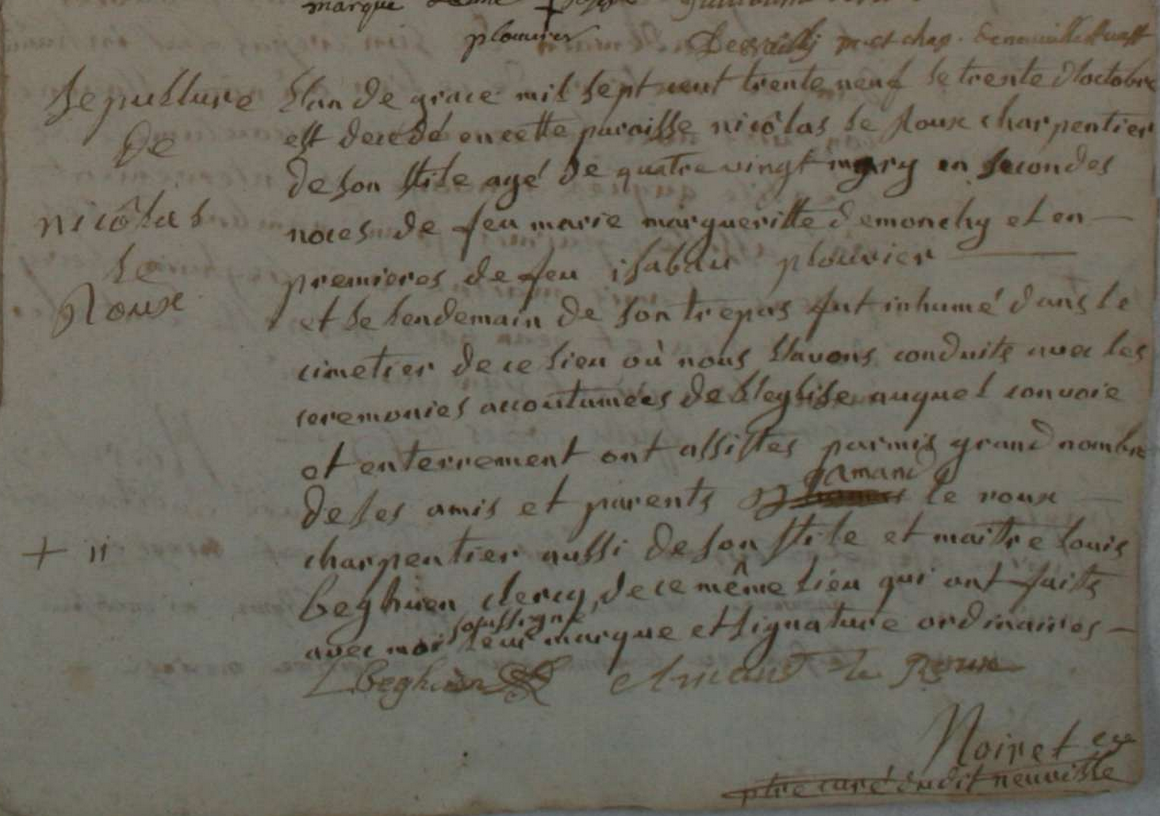 marque
plouvier
Sepulture
de
nicôlas
Le
Roux
L'an de grace mil sept cent trente neuf le trente d'octobre
est decedé en cette paroisse nicôlas le Roux charpentier
de son stile agé de quatre vingt mary en secondes
noces de feu marie margueritte demonchy et en
premieres de feu isabeau plouvier
et le lendemain de son trepas fut inhumé dans le
cimetier de ce lieu où nous l'avons conduits avec les
ceremonies accoutumées de l'eglise auquel convoie
et enterrement ont assistes parmis grand nombre
de ses amis et parents amand le roux
+ 11
charpentier aussi de son stile et maître louis
beghuen clercq de ce même lieu qui ont faits
avec moi soussigné leur marque et signature ordinaires
L beghuen Amand le Roux
Noiret
ptre curé dudit neuville